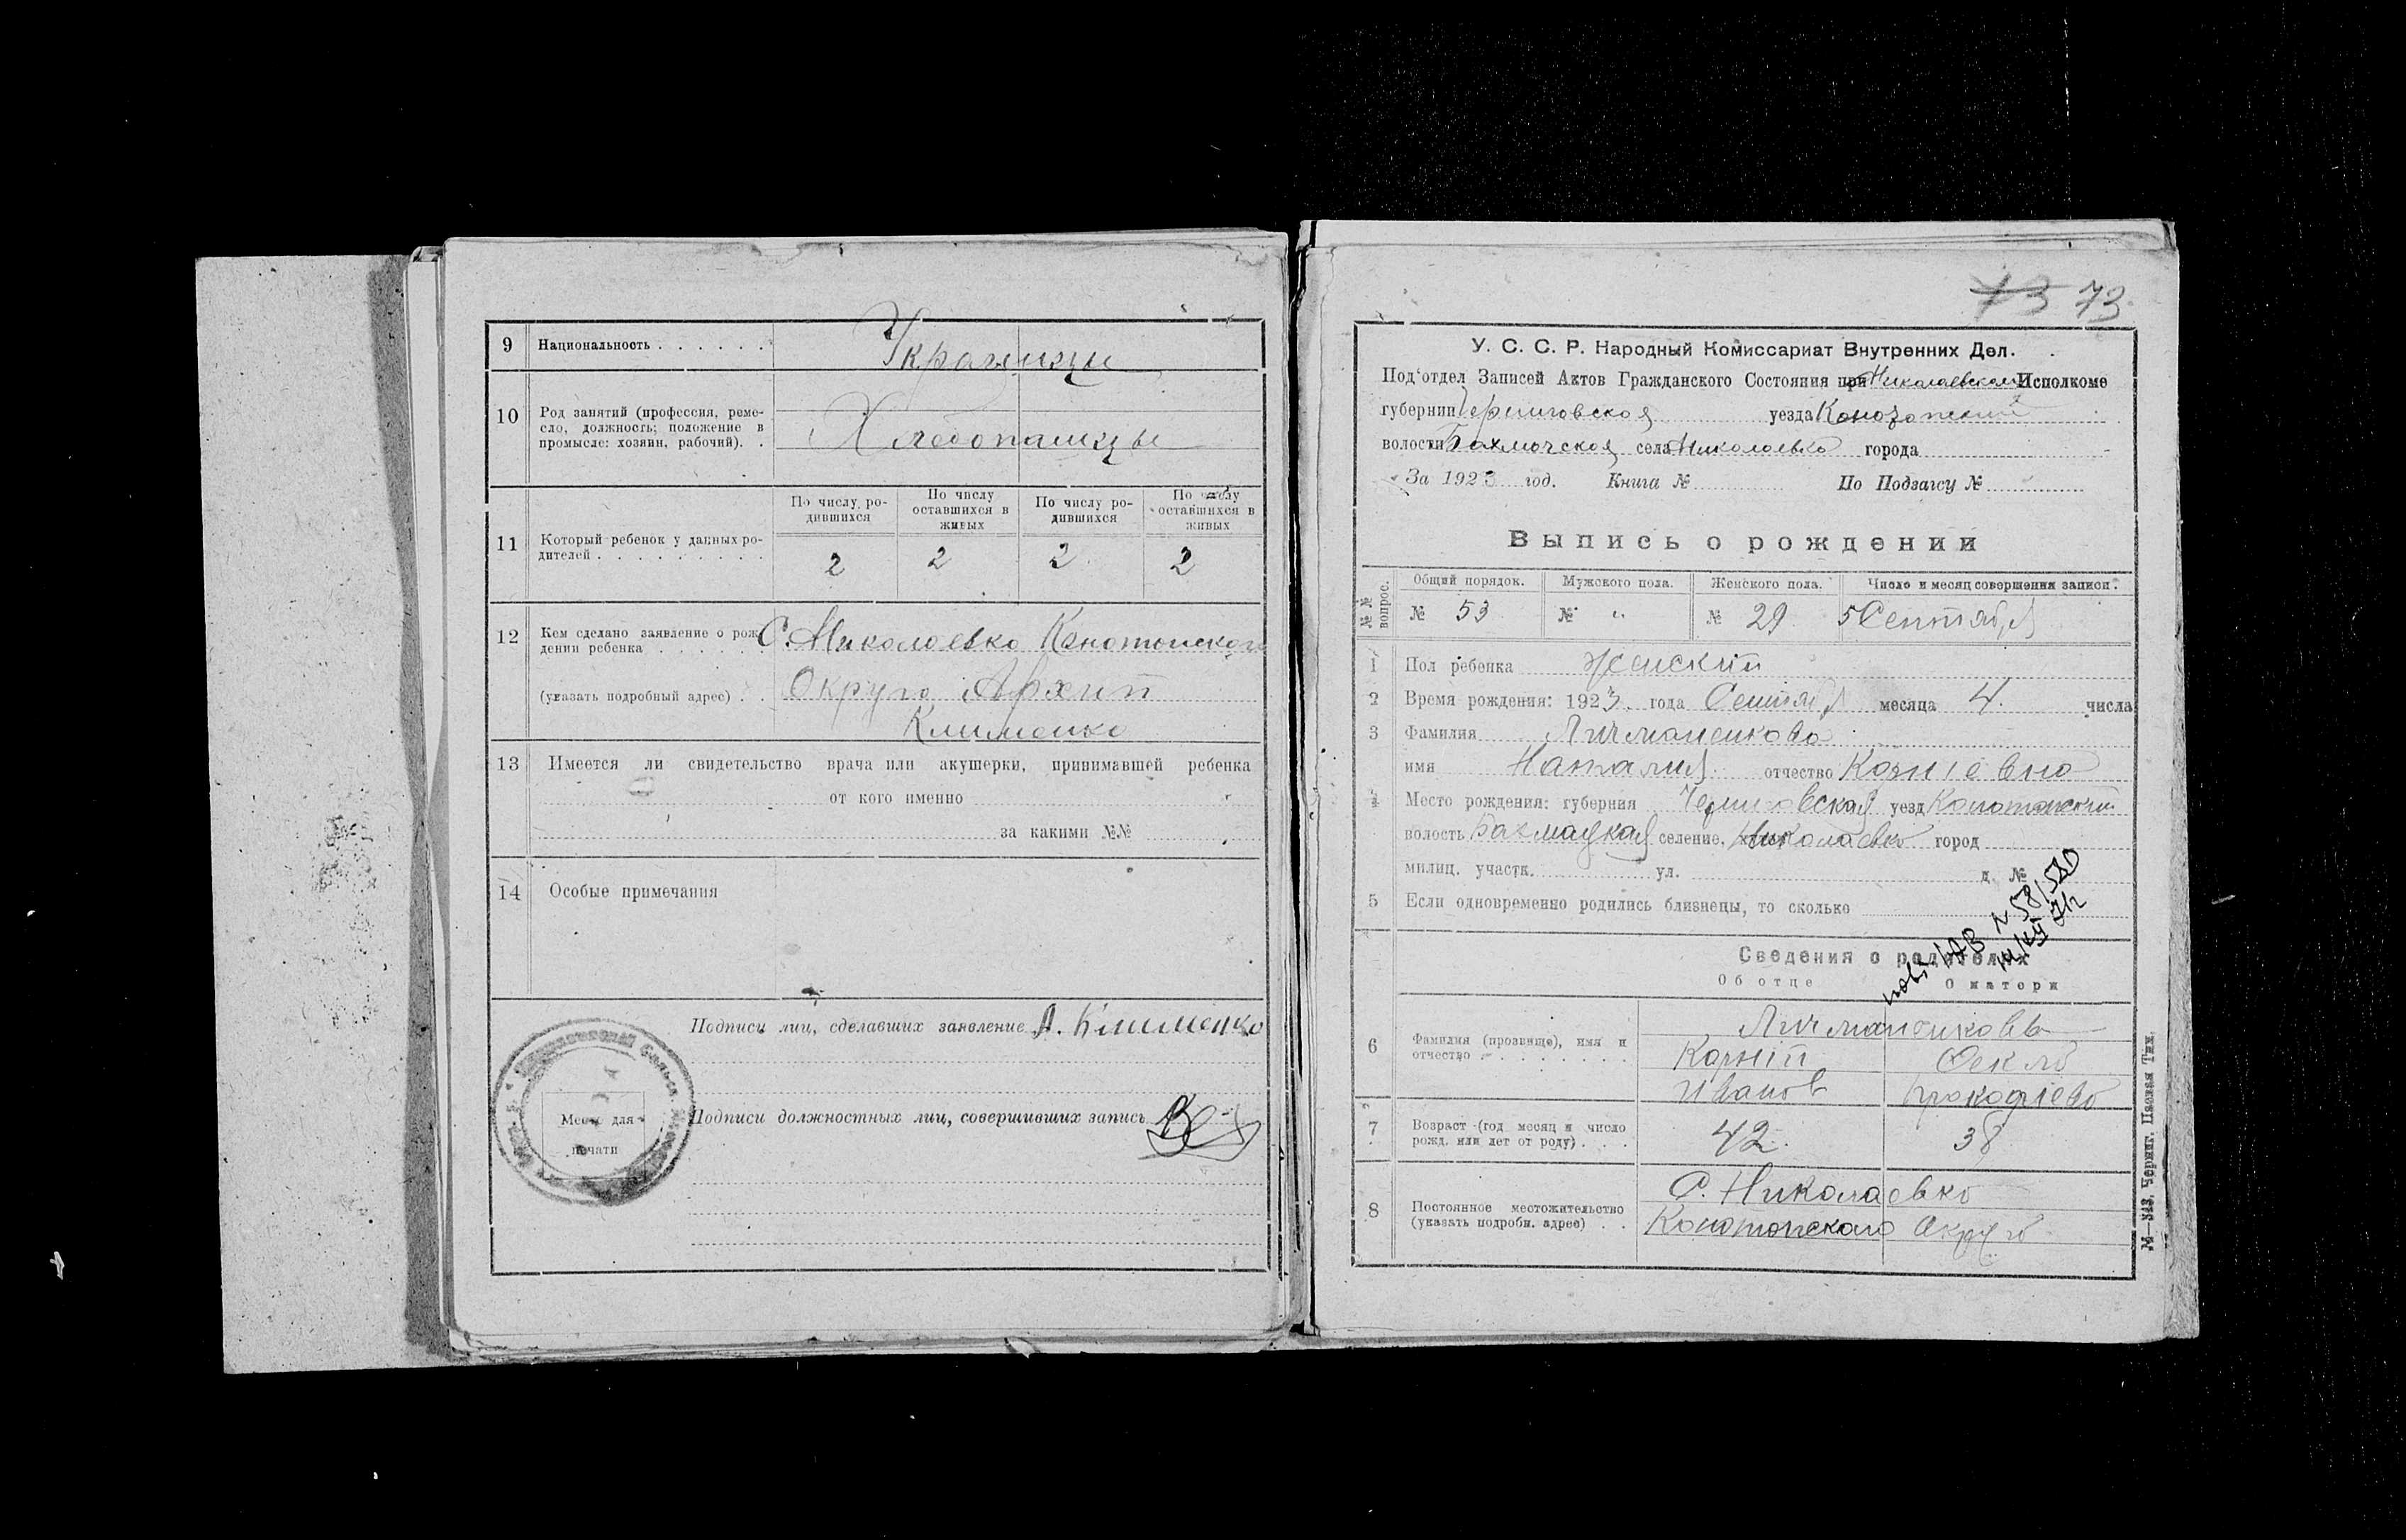 9 Национальность . . . . . . Украинци
10 Род занятий (профессия, реме-
сло, должность; положение в
промысле: хозяин, рабочий). . Хлебопашцы
По числу ро-
дившихся
По числу
оставшихся в
живых
По числу ро-
дившихся
По числу
оставшихся в
живых
11 Который ребенок у данных ро-
дителей . . . . . . . . . 2 2 2 2
12 Кем сделано заявление о рож-
дении ребенка . . . . . . С. Николаевка Конотопского
(указать подробный адрес) . . Округа Архип
Клименко
13 Имеется ли свидетельство врача или акушерки, принимавшей ребенка
от кого именно
за какими №№
14 Особые примечания
Подписи лиц, сделавших заявление А. Клименко
Подписи должностных лиц, совершивших запись
Место для
печати
73 73
У. С. С. Р. Народный Комиссариат Внутренних Дел.
Под'отдел Записей Актов Гражданского Состояния при Николаевском Исполкоме
губернии Черниговской уезда Конотопский
волости Бахмачской села Николаевка города
За 1923 год. Книга № По Подзагсу №
Выпись о рождении
№№ вопрос.
Общий порядок. Мужского пола. Женского пола. Число и месяц совершения записи.
№ 53 № „ № 29 5 Сентября
1 Пол ребенка женскій
2 Время рождения: 1923 года Сентября месяца 4. числа
3 Фамилия Личманенкова
имя Наталия отчество Корніевна
4 Место рождения: губерния Черниговская уезд Конотопскій
волость Бахмацкая селение, Николаевка город
милиц. участк. ул. д. №
5 Если одновременно родились близнецы, то сколько
Сведения о родителях
Об отце О матери
6 Фамилия (прозвище), имя и
отчество . . . . . . . . Личманенковы
Корній Фекла
Иванов Прокофіева
7 Возраст (год месяц и число
рожд. или лет от роду) . . . 42. 38
8 Постоянное местожительство
(указать подробн. адрес) . . С. Николаевка
Конотопского Округа
М—343. Черниг. Паевая Тип.